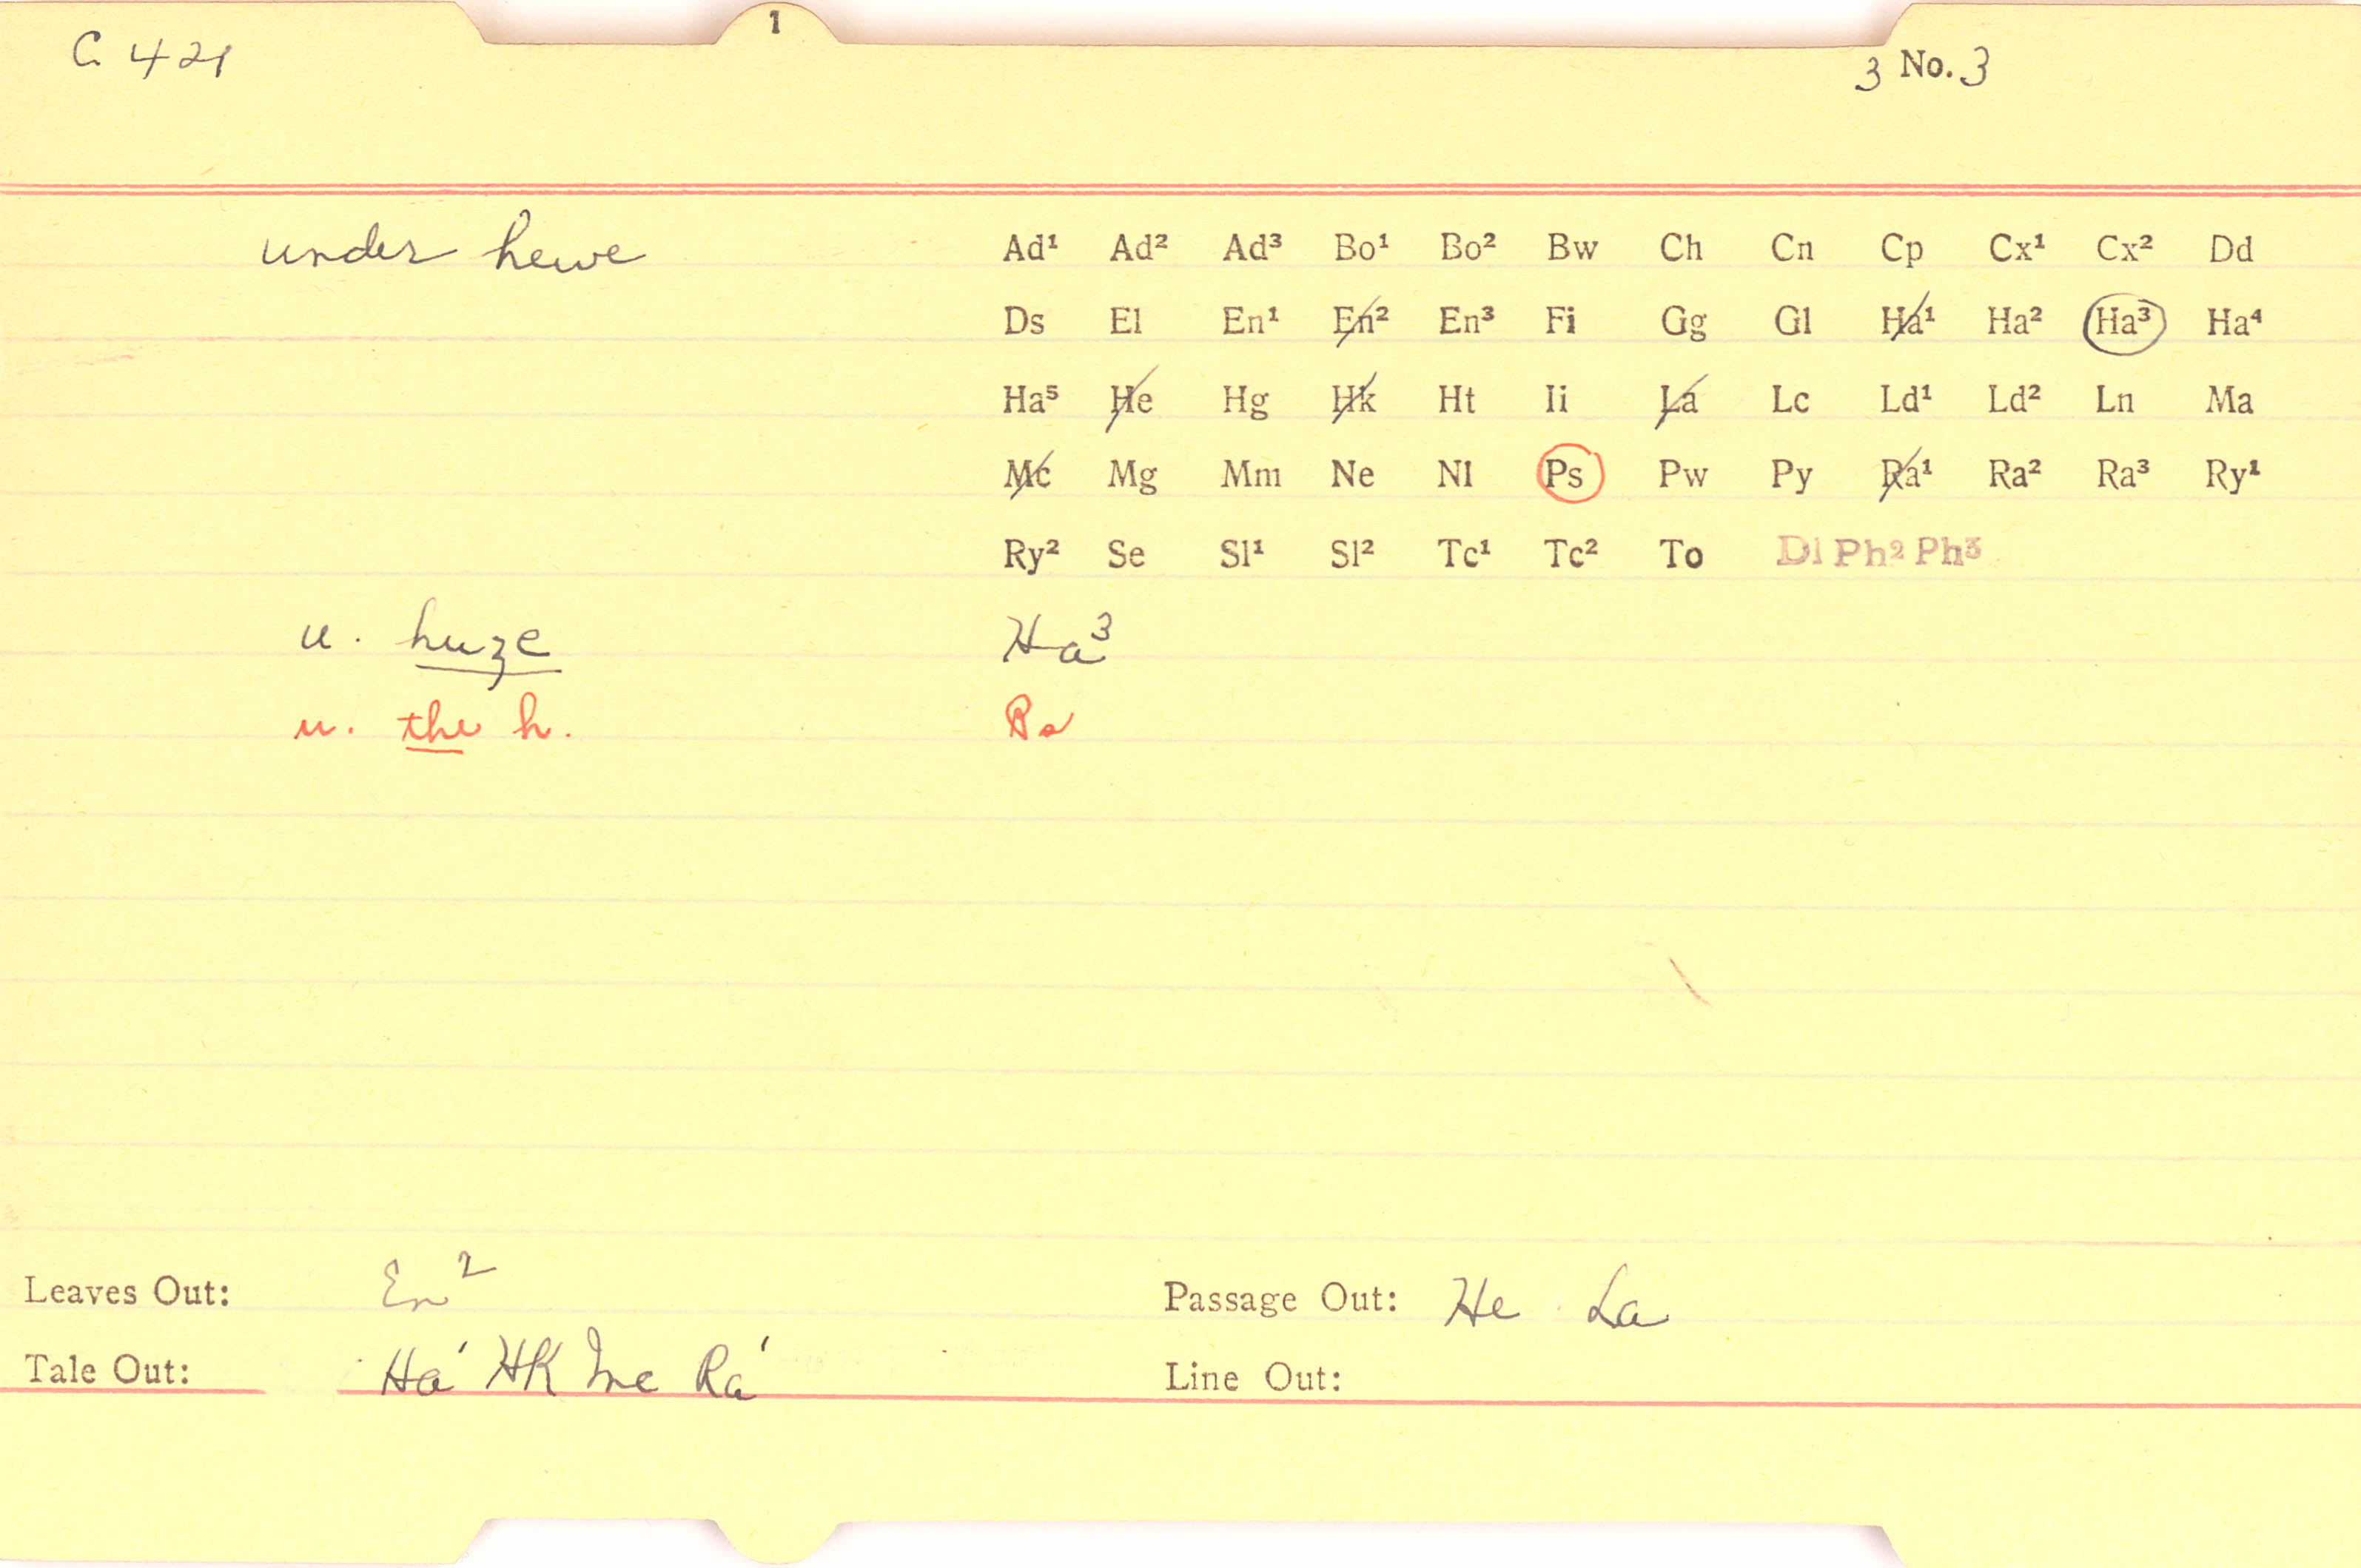 1
C 421
3 No. 3
under hewe
Ad¹ Ad² Ad³ Bo¹ Bo² Bw Ch Cn Cp Cx¹ Cx² Dd
Ds El En¹ En² En³ Fi Gg Gl Ha¹ Ha² Ha³ Ha⁴
Ha⁵ He Hg Hk Ht Ii La Lc Ld¹ Ld² Ln Ma
Mc Mg Mm Ne Nl Ps Pw Py Ra¹ Ra² Ra³ Ry¹
Ry² Se Sl¹ Sl² Tc¹ Tc² To Dl Ph² Ph³
u. huze Ha³
u. the h. Ps
Leaves Out: En²
Passage Out: He La
Tale Out: Ha¹ Hk Mc Ra¹
Line Out: